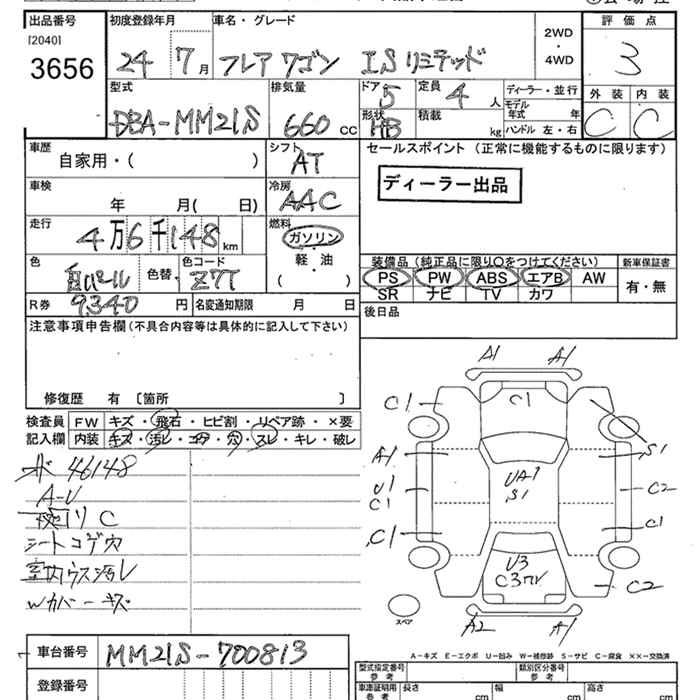 出品番号 初度登録年月 車名・グレード 評価点
[2040] 2WD・4WD
3656 24 7月 フレアワゴン ISリミテッド 3
型式 排気量 ドア 5 定員 4人 ディーラー・並行 外装 内装
DBA-MM21S 660cc 形状 HB 積載 kg モデル年式 年 C C
ハンドル 左・右
車歴 シフト セールスポイント (正常に機能するものに限ります)
自家用・( ) AT
車検 冷房 ディーラー出品
年 月( 日) AAC
走行 燃料
4万6千148km ガソリン
軽・油
( )
色 色替・ 色コード 装備品 (純正品に限り○をつけてください) 新車保証書
白パール Z7T PS PW ABS エアB AW 有・無
SR ナビ TV カワ
R券 9340円 名変通知期限 月 日 後日品
注意事項申告欄 (不具合内容等は具体的に記入して下さい)
修復歴 有 〔箇所 〕
検査員 FW キズ・飛石・ヒビ割・リペア跡・×要
記入欄 内装 キズ・汚レ・コゲ・穴・スレ・キレ・破レ
46148
A-U
C
シートコゲ穴
室内ウス汚レ
Wカバーキズ
A1 A1
C1 C1
A1 S1
U1 UA1 C2
C1 S1
C1 C1
U3
C3 C2
スペア A2 A1
A-キズ E-エクボ U-凹み W-補修跡 S-サビ C-腐食 ××-交換済
車台番号 MM21S-700813
登録番号
型式指定番号 参考 類別区分番号 参考
車庫証明用 参考 長さ cm 幅 cm 高さ cm